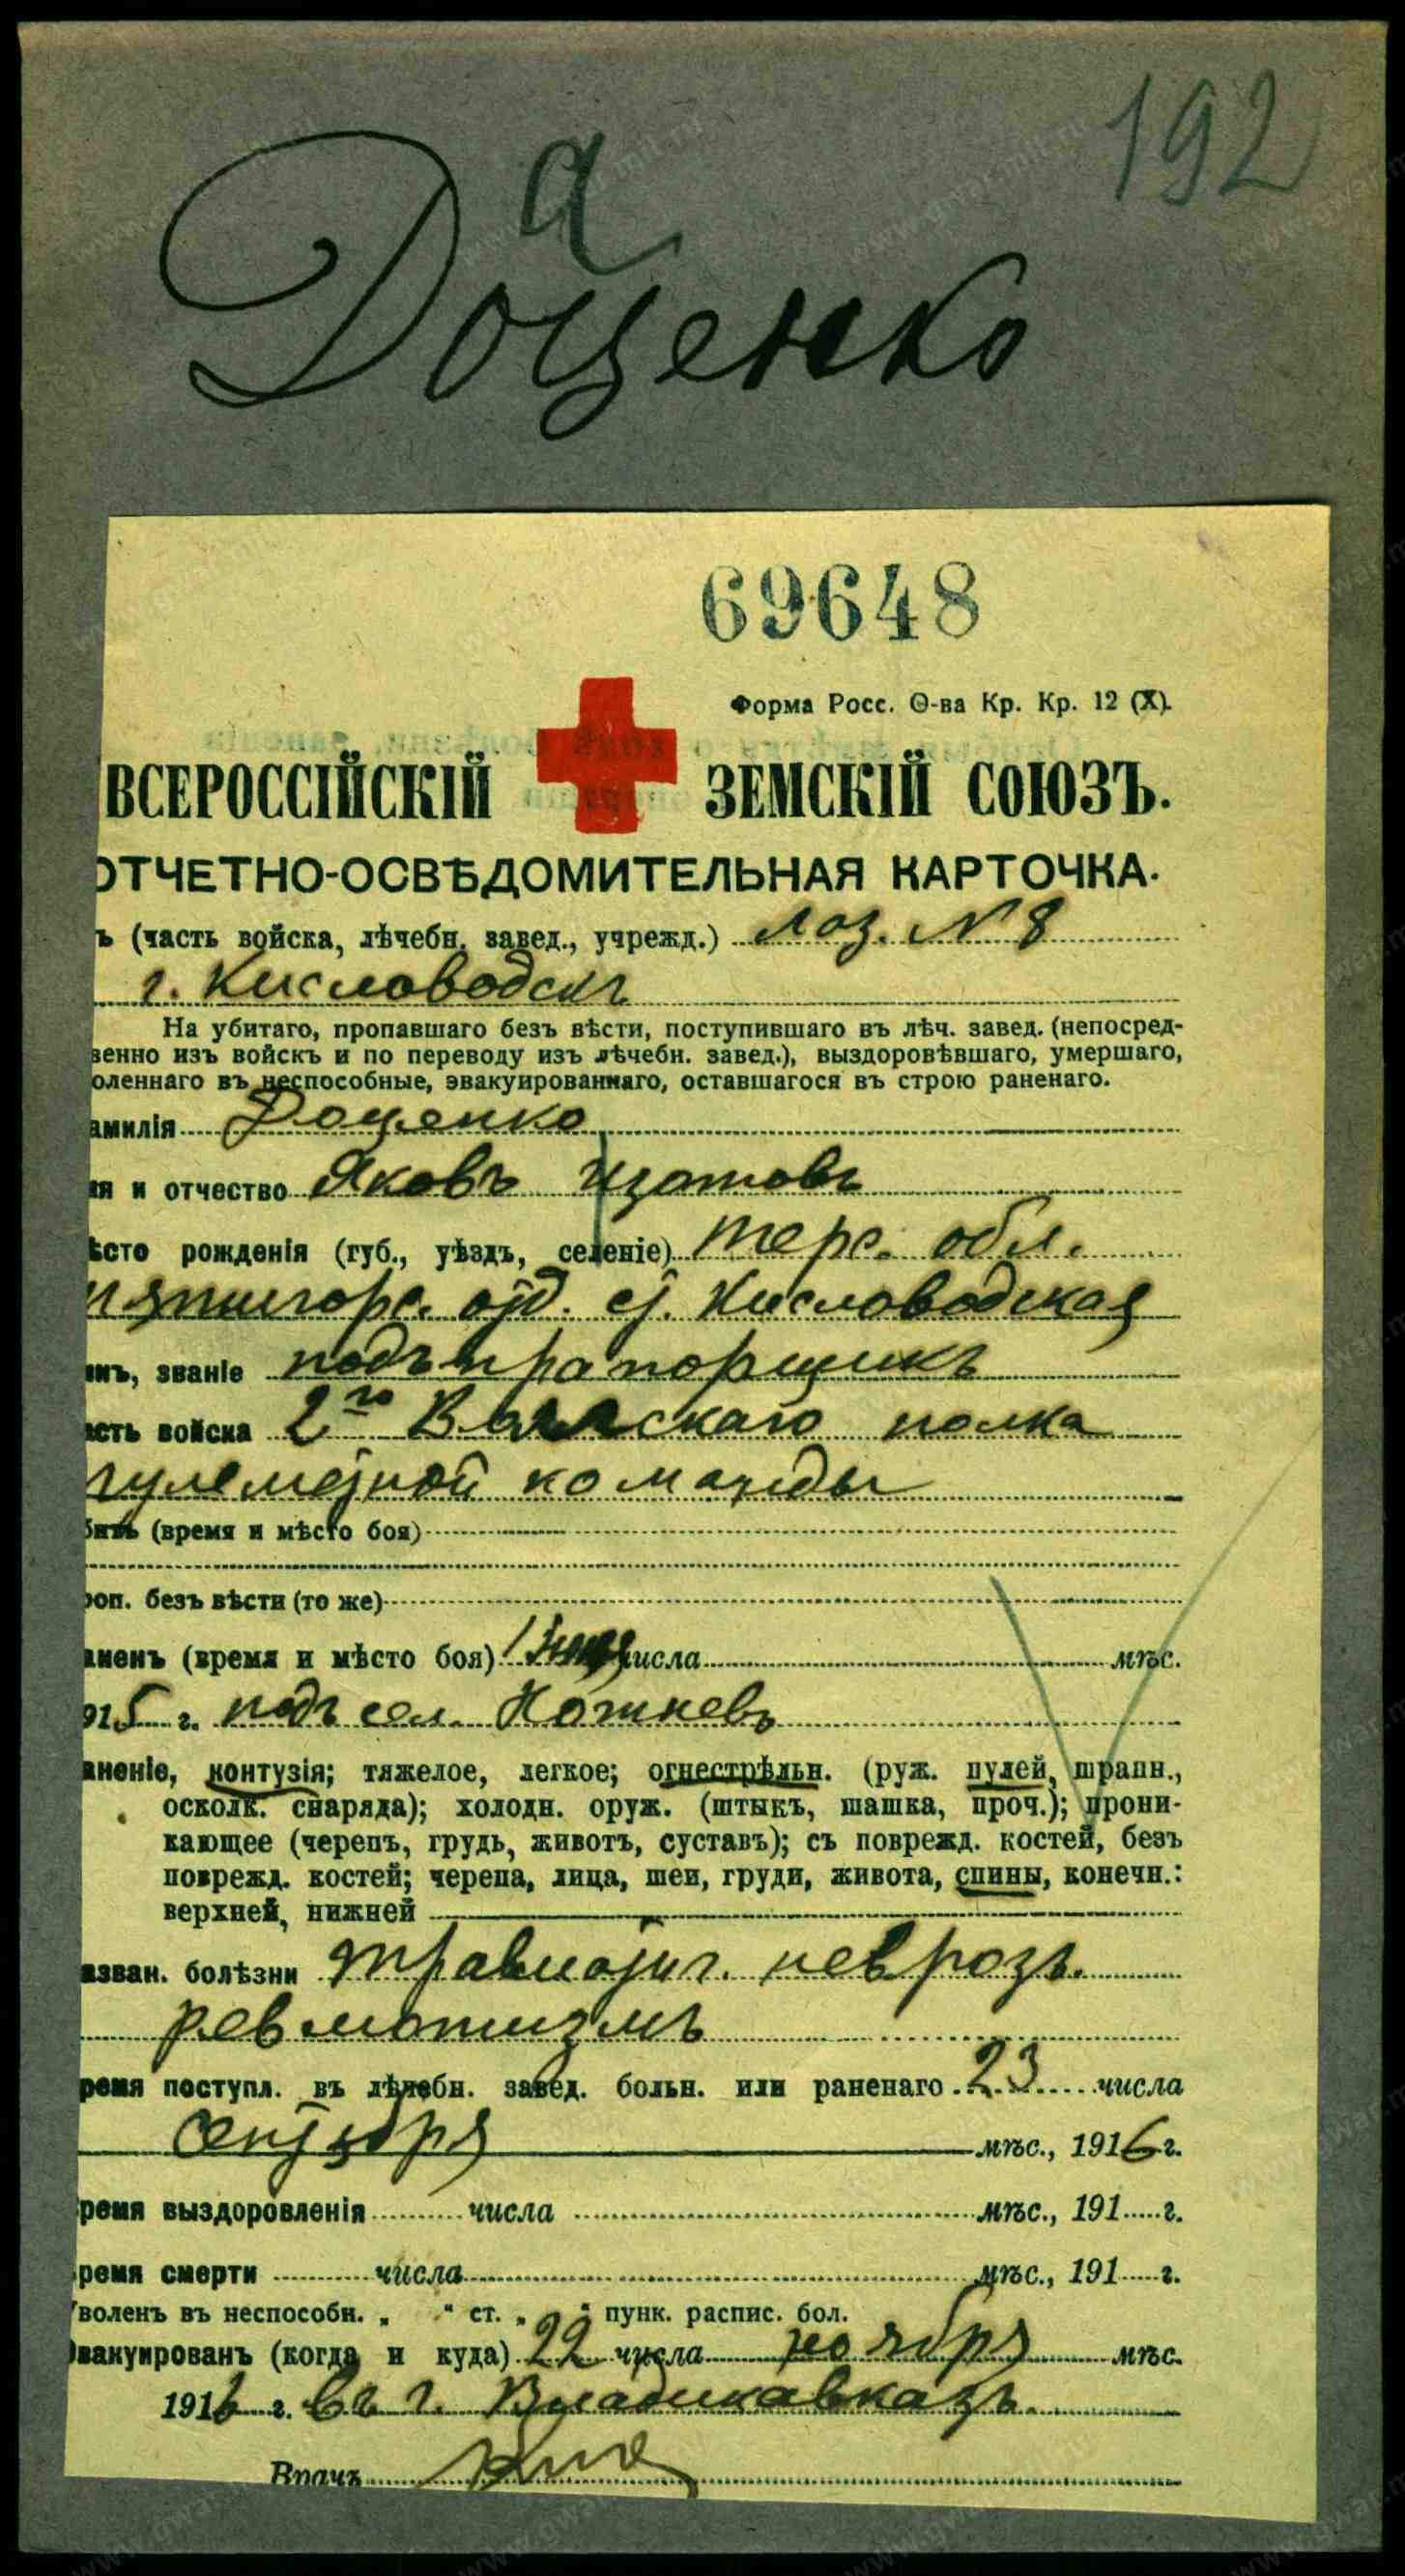 192
а
Доценко
69648
Форма Росс. О-ва Кр. Кр. 12 (X).
ВСЕРОССІЙСКІЙ ЗЕМСКІЙ СОЮЗЪ.
ОТЧЕТНО-ОСВѢДОМИТЕЛЬНАЯ КАРТОЧКА.
ъ (часть войска, лѣчебн. завед., учрежд.) Лаз. № 8
г. Кисловодскъ
На убитаго, пропавшаго безъ вѣсти, поступившаго въ лѣч. завед. (непосред-
венно изъ войскъ и по переводу изъ лѣчебн. завед.), выздоровѣвшаго, умершаго,
оленнаго въ неспособные, эвакуированнаго, оставшагося въ строю раненаго.
амилія Доценко
мя и отчество Яковъ Изотовъ
ѣсто рожденія (губ., уѣздъ, селеніе) Терс. обл.
Пятигорс. отд. ст. Кисловодская
инъ, званіе подъпрапорщикъ
асть войска 2го Волгскаго полка
пулеметной команды
битъ (время и мѣсто боя)
роп. безъ вѣсти (то же)
аненъ (время и мѣсто боя) числа мѣс.
915 г. подъ сел.
аненіе, контузія; тяжелое, легкое; огнестрѣльн. (руж. пулей, шрапн.,
осколк. снаряда); холодн. оруж. (штыкъ, шашка, проч.); прони-
кающее (черепъ, грудь, животъ, суставъ); съ поврежд. костей, безъ
поврежд. костей; черепа, лица, шеи, груди, живота, спины, конечн.:
верхней, нижней
азван. болѣзни травматич. неврозъ.
ревматизмъ
ремя поступл. въ лѣчебн. завед. больн. или раненаго 23 числа
сентября мѣс., 1916 г.
ремя выздоровленія числа мѣс., 191 г.
ремя смерти числа мѣс., 191 г.
Уволенъ въ неспособн. „ “ ст. „ “ пунк. распис. бол.
Эвакуированъ (когда и куда) 22 числа ноября мѣс.
1916 г. въ г. Владикавказъ.
Врачъ